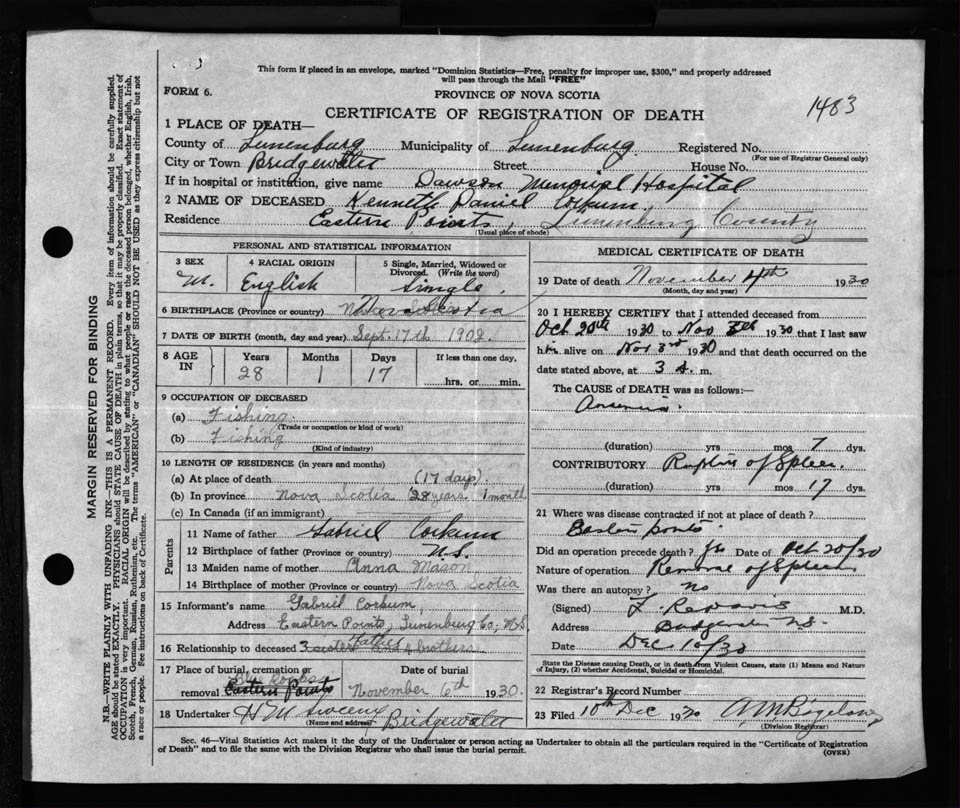 This form if placed in an envelope, marked "Dominion Statistics—Free, penalty for improper use, $300," and properly addressed
will pass through the Mail "FREE"
FORM 6.
PROVINCE OF NOVA SCOTIA
1483
CERTIFICATE OF REGISTRATION OF DEATH
1 PLACE OF DEATH—
County of Lunenburg Municipality of Lunenburg Registered No.
(For use of Registrar General only)
City or Town Bridgewater Street House No.
If in hospital or institution, give name Dawson Memorial Hospital
2 NAME OF DECEASED Kenneth Daniel Corkum
Residence Eastern Points, Lunenburg County
(Usual place of abode)
PERSONAL AND STATISTICAL INFORMATION
3 SEX 4 RACIAL ORIGIN 5 Single, Married, Widowed or
Divorced. (Write the word)
M. English Single
6 BIRTHPLACE (Province or country) Nova Scotia
7 DATE OF BIRTH (month, day and year) Sept. 17th 1902.
8 AGE IN Years Months Days If less than one day,
28 1 17 hrs. or min.
9 OCCUPATION OF DECEASED
(a) Fishing.
(Trade or occupation or kind of work)
(b) Fishing
(Kind of industry)
10 LENGTH OF RESIDENCE (in years and months)
(a) At place of death (17 days).
(b) In province Nova Scotia 28 years 1 month
(c) In Canada (if an immigrant)
Parents
11 Name of father Gabriel Corkum
12 Birthplace of father (Province or country) N.S.
13 Maiden name of mother Anna Mason
14 Birthplace of mother (Province or country) Nova Scotia
15 Informant's name Gabriel Corkum,
Address Eastern Points, Lunenburg Co; N.S.
Father
16 Relationship to deceased 3 sisters and 4 brothers
17 Place of burial, cremation or Date of burial
removal Eastern Points November 6th 1930.
18 Undertaker H M
(Name and address) Bridgewater
MEDICAL CERTIFICATE OF DEATH
19 Date of death November 4th 1930
(Month, day and year)
20 I HEREBY CERTIFY that I attended deceased from
Oct 20th 1930 to Nov 1930 that I last saw
him alive on Nov 3rd 1930 and that death occurred on the
date stated above, at 3 A. m.
The CAUSE OF DEATH was as follows:—
(duration) yrs mos 7 dys.
CONTRIBUTORY Rupture of Spleen.
(duration) yrs mos 17 dys.
21 Where was disease contracted if not at place of death?
points
Did an operation precede death? yes Date of Oct 20/30
Nature of operation Removal of Spleen
Was there an autopsy? no
(Signed) M.D.
Address Bridgewater N.S.
Date Dec 10/30
State the Disease causing Death, or in death from Violent Causes, state (1) Means and Nature
of Injury, (2) whether Accidental, Suicidal or Homicidal.
22 Registrar's Record Number
23 Filed 10th Dec 1930
(Division Registrar)
Sec. 46—Vital Statistics Act makes it the duty of the Undertaker or person acting as Undertaker to obtain all the particulars required in the "Certificate of Registration
of Death" and to file the same with the Division Registrar who shall issue the burial permit.
(OVER)
MARGIN RESERVED FOR BINDING
N.B.—WRITE PLAINLY WITH UNFADING INK—THIS IS A PERMANENT RECORD. Every item of information should be carefully supplied.
AGE should be stated EXACTLY. PHYSICIANS should STATE CAUSE OF DEATH in plain terms, so that it may be properly classified. Exact statement of
OCCUPATION is very important. RACIAL ORIGIN will be described by stating to what people or race the deceased person belonged, whether English, Irish,
Scotch, French, German, Russian, Ruthenian, etc. The terms "AMERICAN" or "CANADIAN" SHOULD NOT BE USED as they express citizenship but not
a race or people. See instructions on back of Certificate.